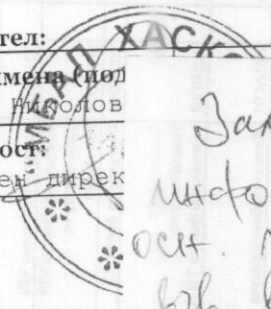 тел:
имена (под
Николов
ост:
ен дирек
"МБАЛ ХАСКО
инфо
осн.